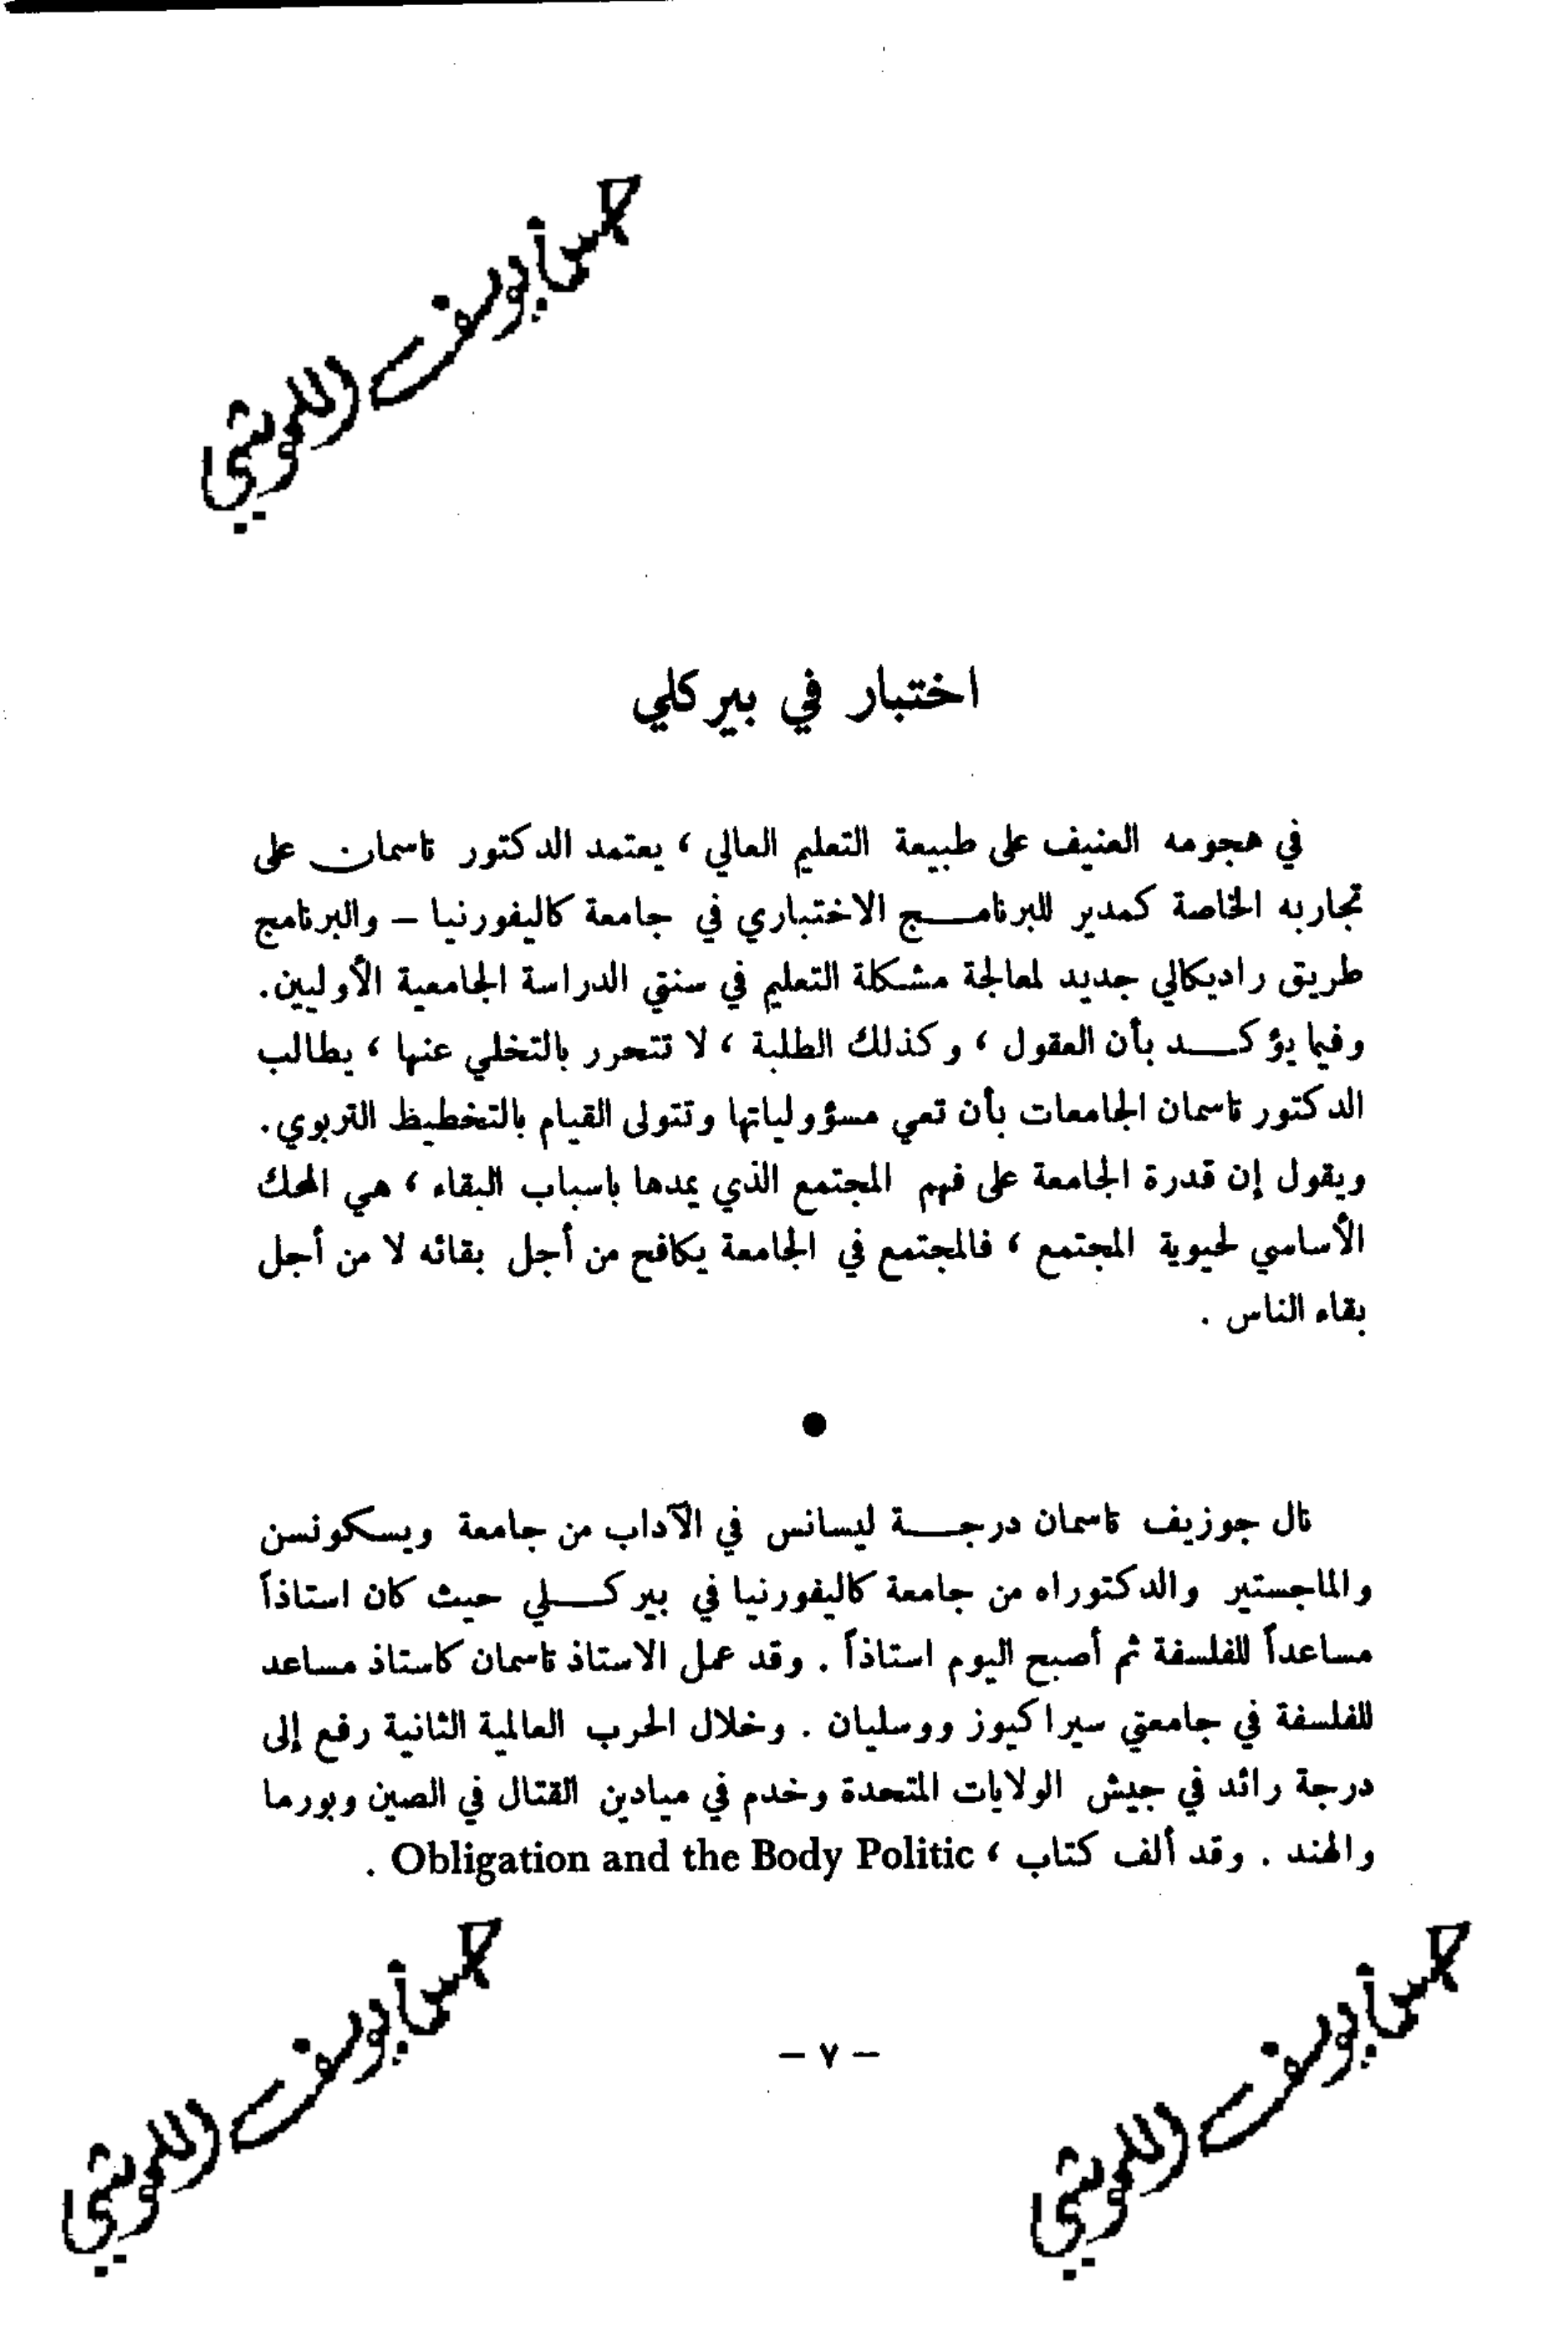 اختبار في بيركلي
في هجومه العنيف على طبيعة التعليم العالي ، يعتمد الدكتور تاسمان على
تجاربه الخاصة كمدير للبرنامـــج الاختباري في جامعة كاليفورنيا – والبرنامج
طريق راديكالي جديد لمعالجة مشكلة التعليم في سنتي الدراسة الجامعية الأوليين.
وفيما يؤكـــد بأن العقول ، وكذلك الطلبة ، لا تتحرر بالتخلي عنها ، يطالب
الدكتور تاسمان الجامعات بأن تعي مسؤولياتها وتتولى القيام بالتخطيظ التربوي.
ويقول إن قدرة الجامعة على فهم المجتمع الذي يمدها باسباب البقاء ، هي المحك
الأساسي لحيوية المجتمع ، فالمجتمع في الجامعة يكافح من أجل بقائه لا من أجل
بقاء الناس .
●
نال جوزيف تاسمان درجـــة ليسانس في الآداب من جامعة ويسكونسن
والماجستير والدكتوراه من جامعة كاليفورنيا في بيركـــلي حيث كان استاذاً
مساعداً للفلسفة ثم أصبح اليوم استاذاً . وقد عمل الاستاذ تاسمان كاستاذ مساعد
للفلسفة في جامعتي سيراكيوز ووسليان . وخلال الحرب العالمية الثانية رفع إلى
درجة رائد في جيش الولايات المتحدة وخدم في ميادين القتال في الصين وبورما
والهند . وقد ألف كتاب ، Obligation and the Body Politic .
– ٧ –